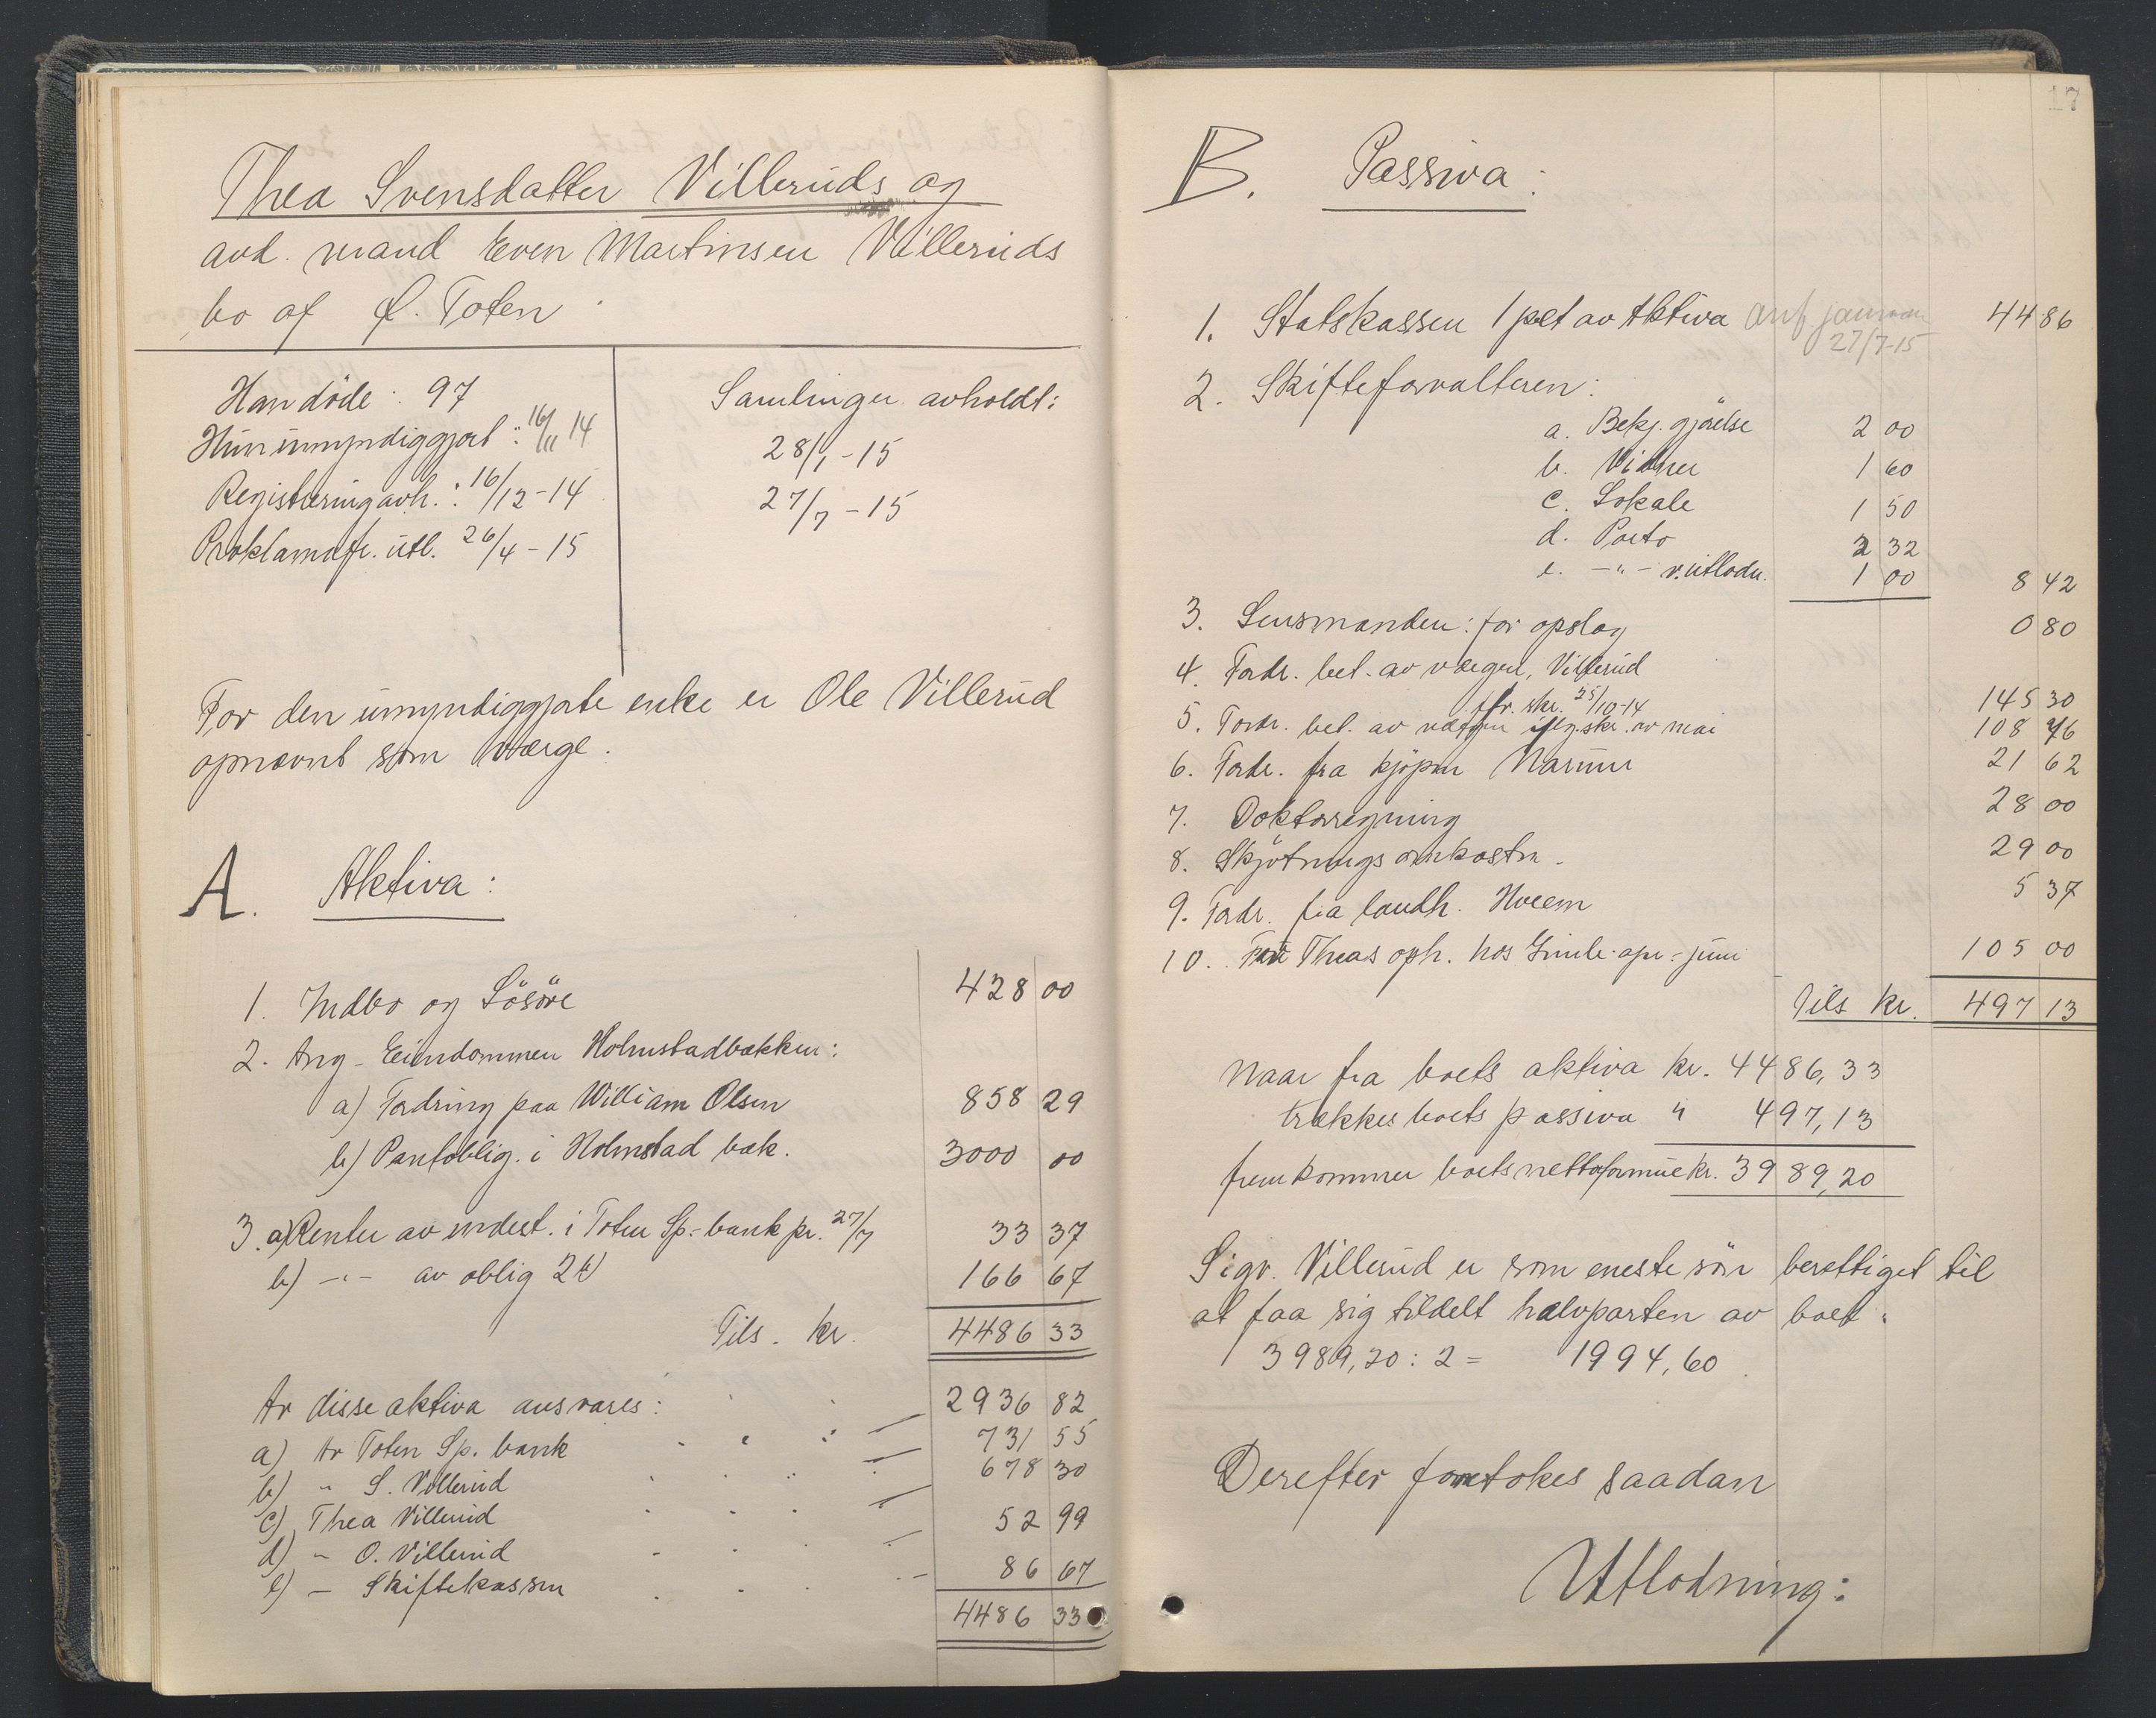 Thea Svensdatter Villeruds og
avd. mand Even Martinsen Villeruds
bo af Ø. Toten
Han döde : 97
Hun umyndiggjort : 16/11 14
Registrering avh. : 16/12 - 14
Proklamafr. utl. 26/4 - 15
Samlinger avholdt :
28/1 - 15
27/7 - 15
For den umyndiggjorte enke er Ole Villerud
opnævnt som værge.
A. Aktiva :
1. Indbo og Lösöre 428 00
2. Ang. Eiendommen Holmstadbakken :
a) Fordring paa William Olsen 858 29
b) Pantoblig. i Holmstad bak. 3000 00
3. a) Renter av indest. i Toten Sp.-bank pr. 27/7 33 37
b) -"- av oblig 2b) 166 67
Tils. kr. 4486 33
Av disse aktiva ansvares : 2936 82
a) Av Toten Sp. bank 731 55
b) " S. Villerud 678 30
c) Thea Villerud 52 99
d) - O. Villerud
e) - Skiftekassen 86 67
4486 33
17
B. Passiva :
1. Statskassen 1 pct av Aktiva 44 86
27/7-15
2. Skifteforvalteren :
a. Bekj.gjörelse 2 00
b. Vidner 1 60
c. Lokale 1 50
d. Porto 2 32
e. -"- v. utlodn. 1 00 8 42
3. Lensmanden : for opslag 0 80
4. Fordr. bet. av værgen, Villerud
ifr. skr. 25/10-14 145 30
5. Fordr. bet. av værgen iflg. skr. av mai 108 76
6. Fordr. fra kjöpm Narum 21 62
7. Doktorregning 28 00
8. Skjötnings omkostn. 29 00
9. Fordr. fra landh. Hveem 5 37
10. For Theas oph. hos Gimle apr - juni 105 00
Tils kr. 497 13
Naar fra boets aktiva kr. 4486,33
trækkes boets passiva " 497,13
fremkommer boets nettoformue kr. 3989,20
Sigv. Villerud er som eneste sön berettiget til
at faa sig tildelt halvparten av boet :
3989,20 : 2 = 1994,60
Derefter foretokes saadan
Utlodning :